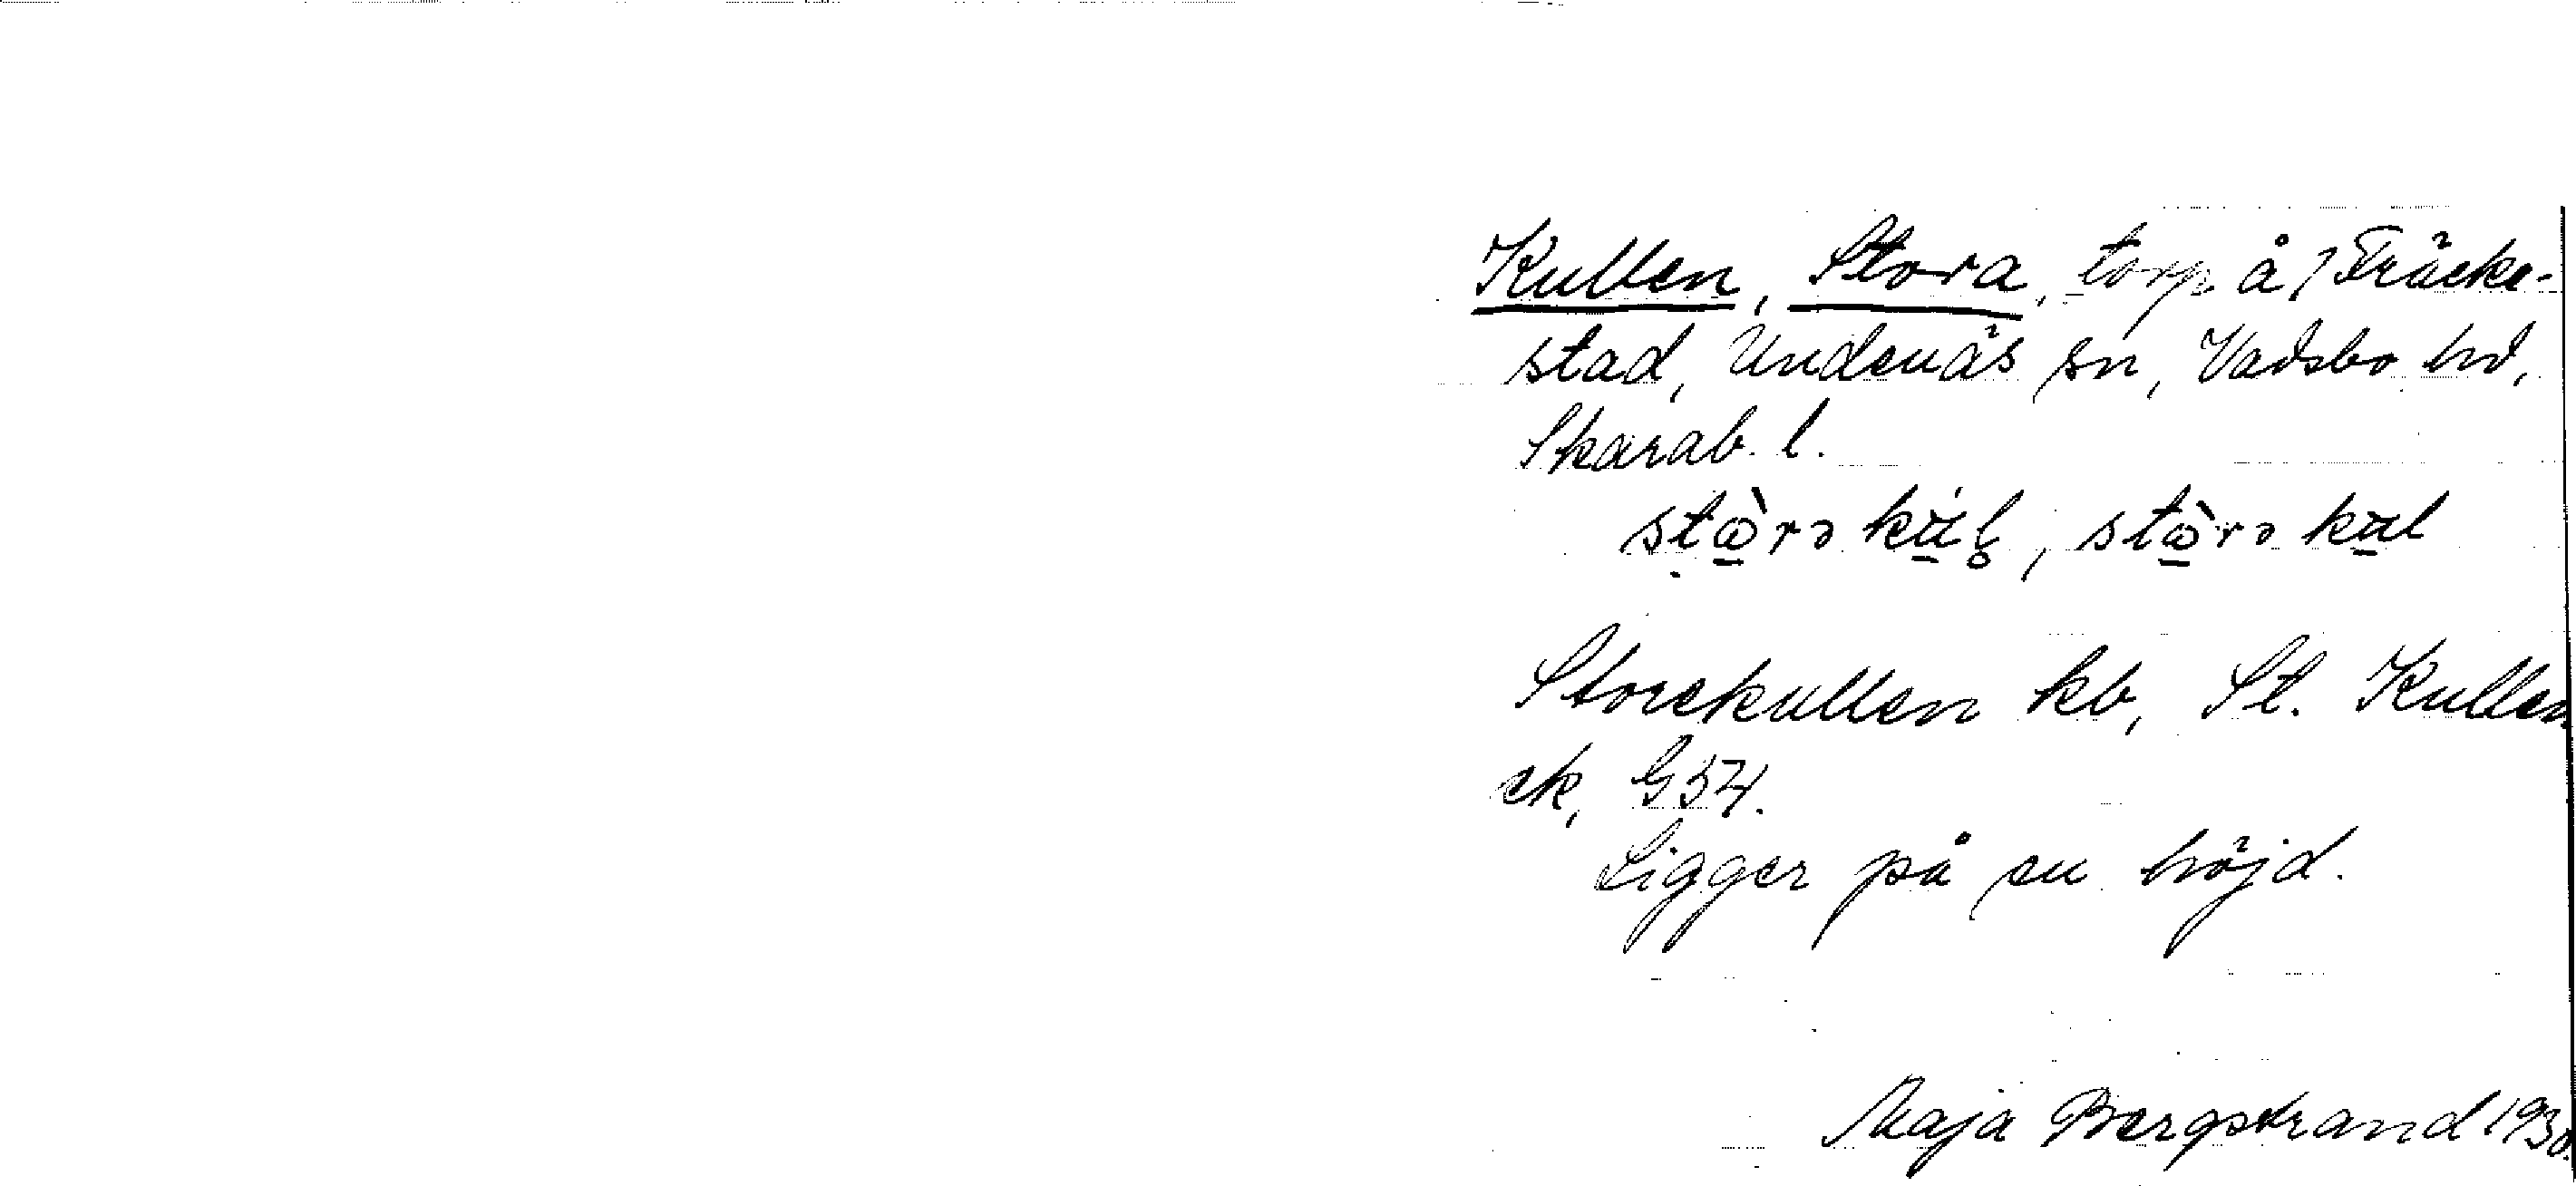 Kullen, Stora, torp å 1 Fräcke-
stad, Undenäs sn, Vadsbo hd,
Skarab. l.
Storekullen kb, St. Kullen
ek, G 34.
Ligger på en höjd.
Maja Bergstrand 1930.